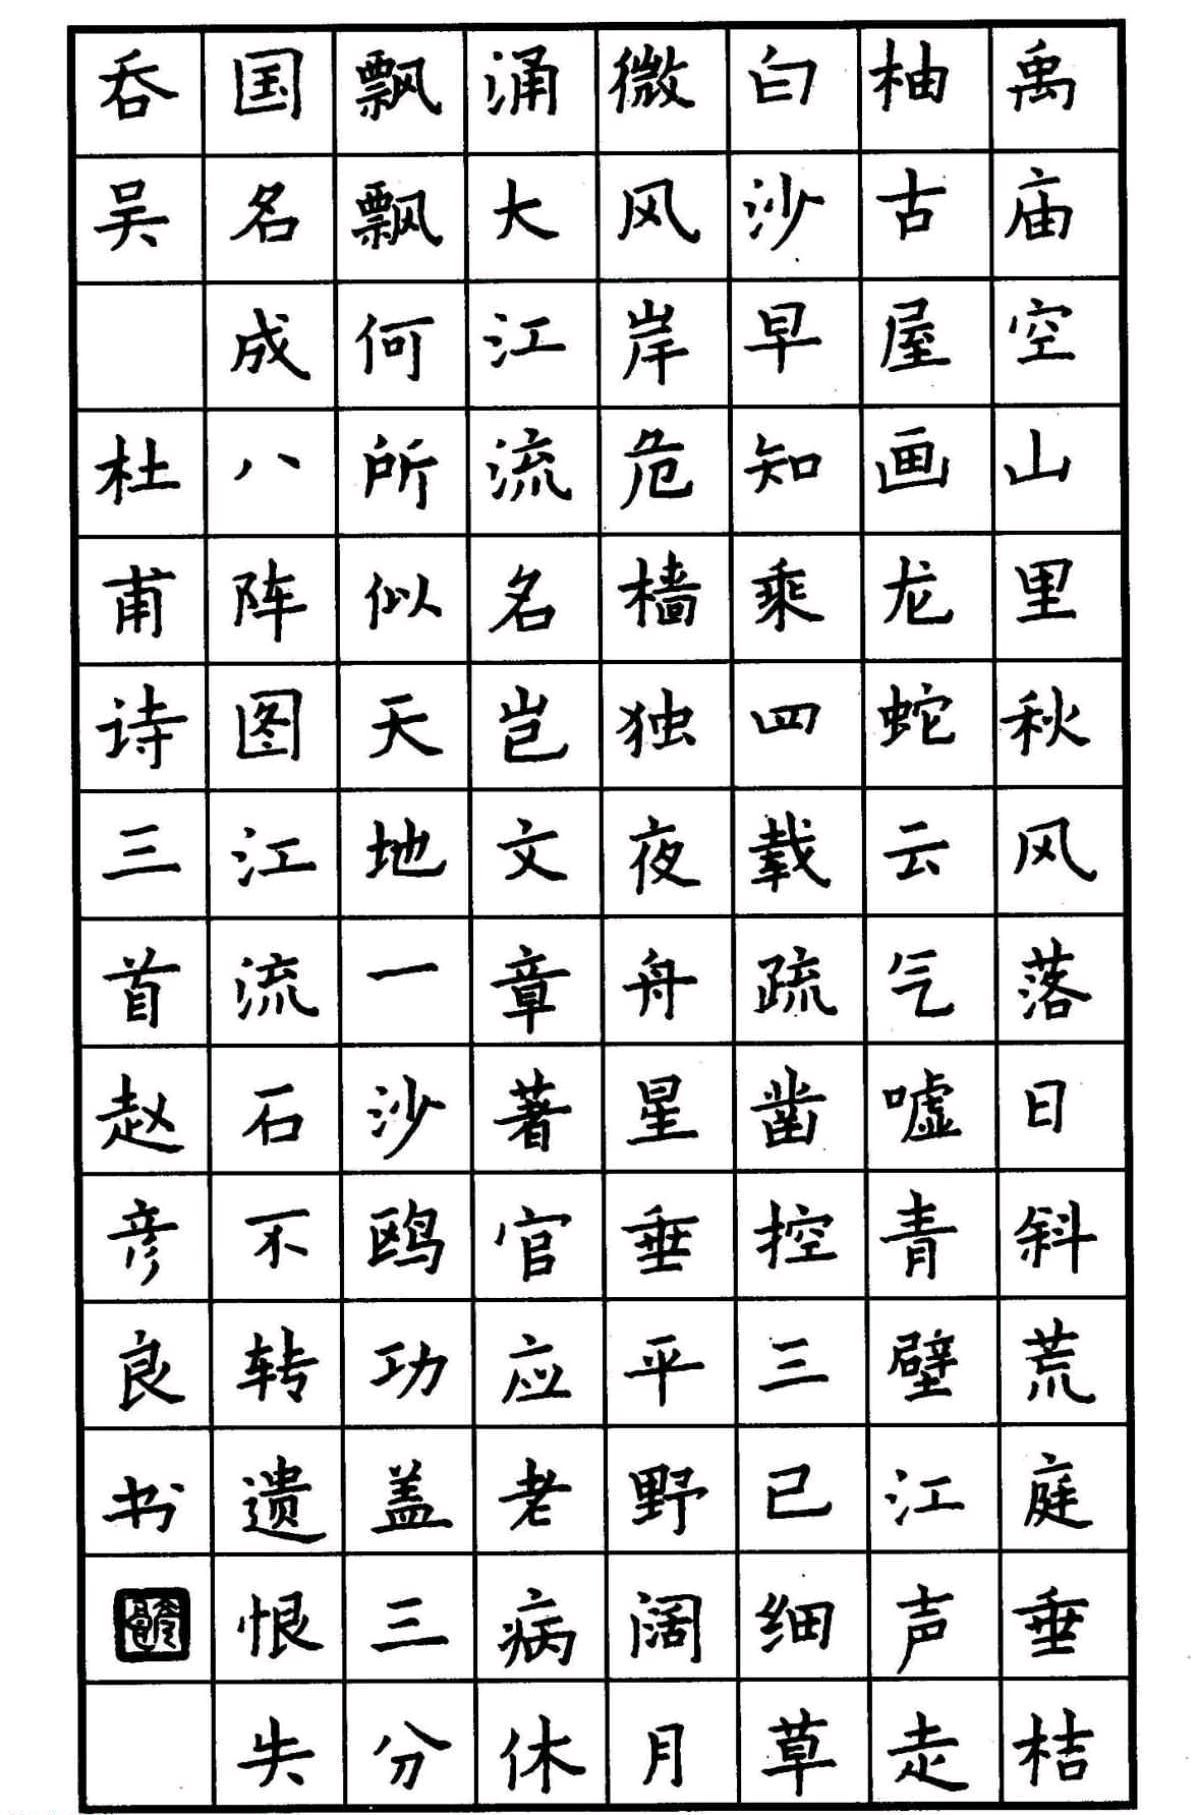 禹庙空山里秋风落日斜荒庭垂桔
柚古屋画龙蛇云气嘘青壁江声走
白沙早知乘四载疏凿控三已细草
微风岸危樯独夜舟星垂平野阔月
涌大江流名岂文章著官应老病休
飘飘何所似天地一沙鸥功盖三分
国名成八阵图江流石不转遗恨失
吞吴 杜甫诗三首赵彦良书